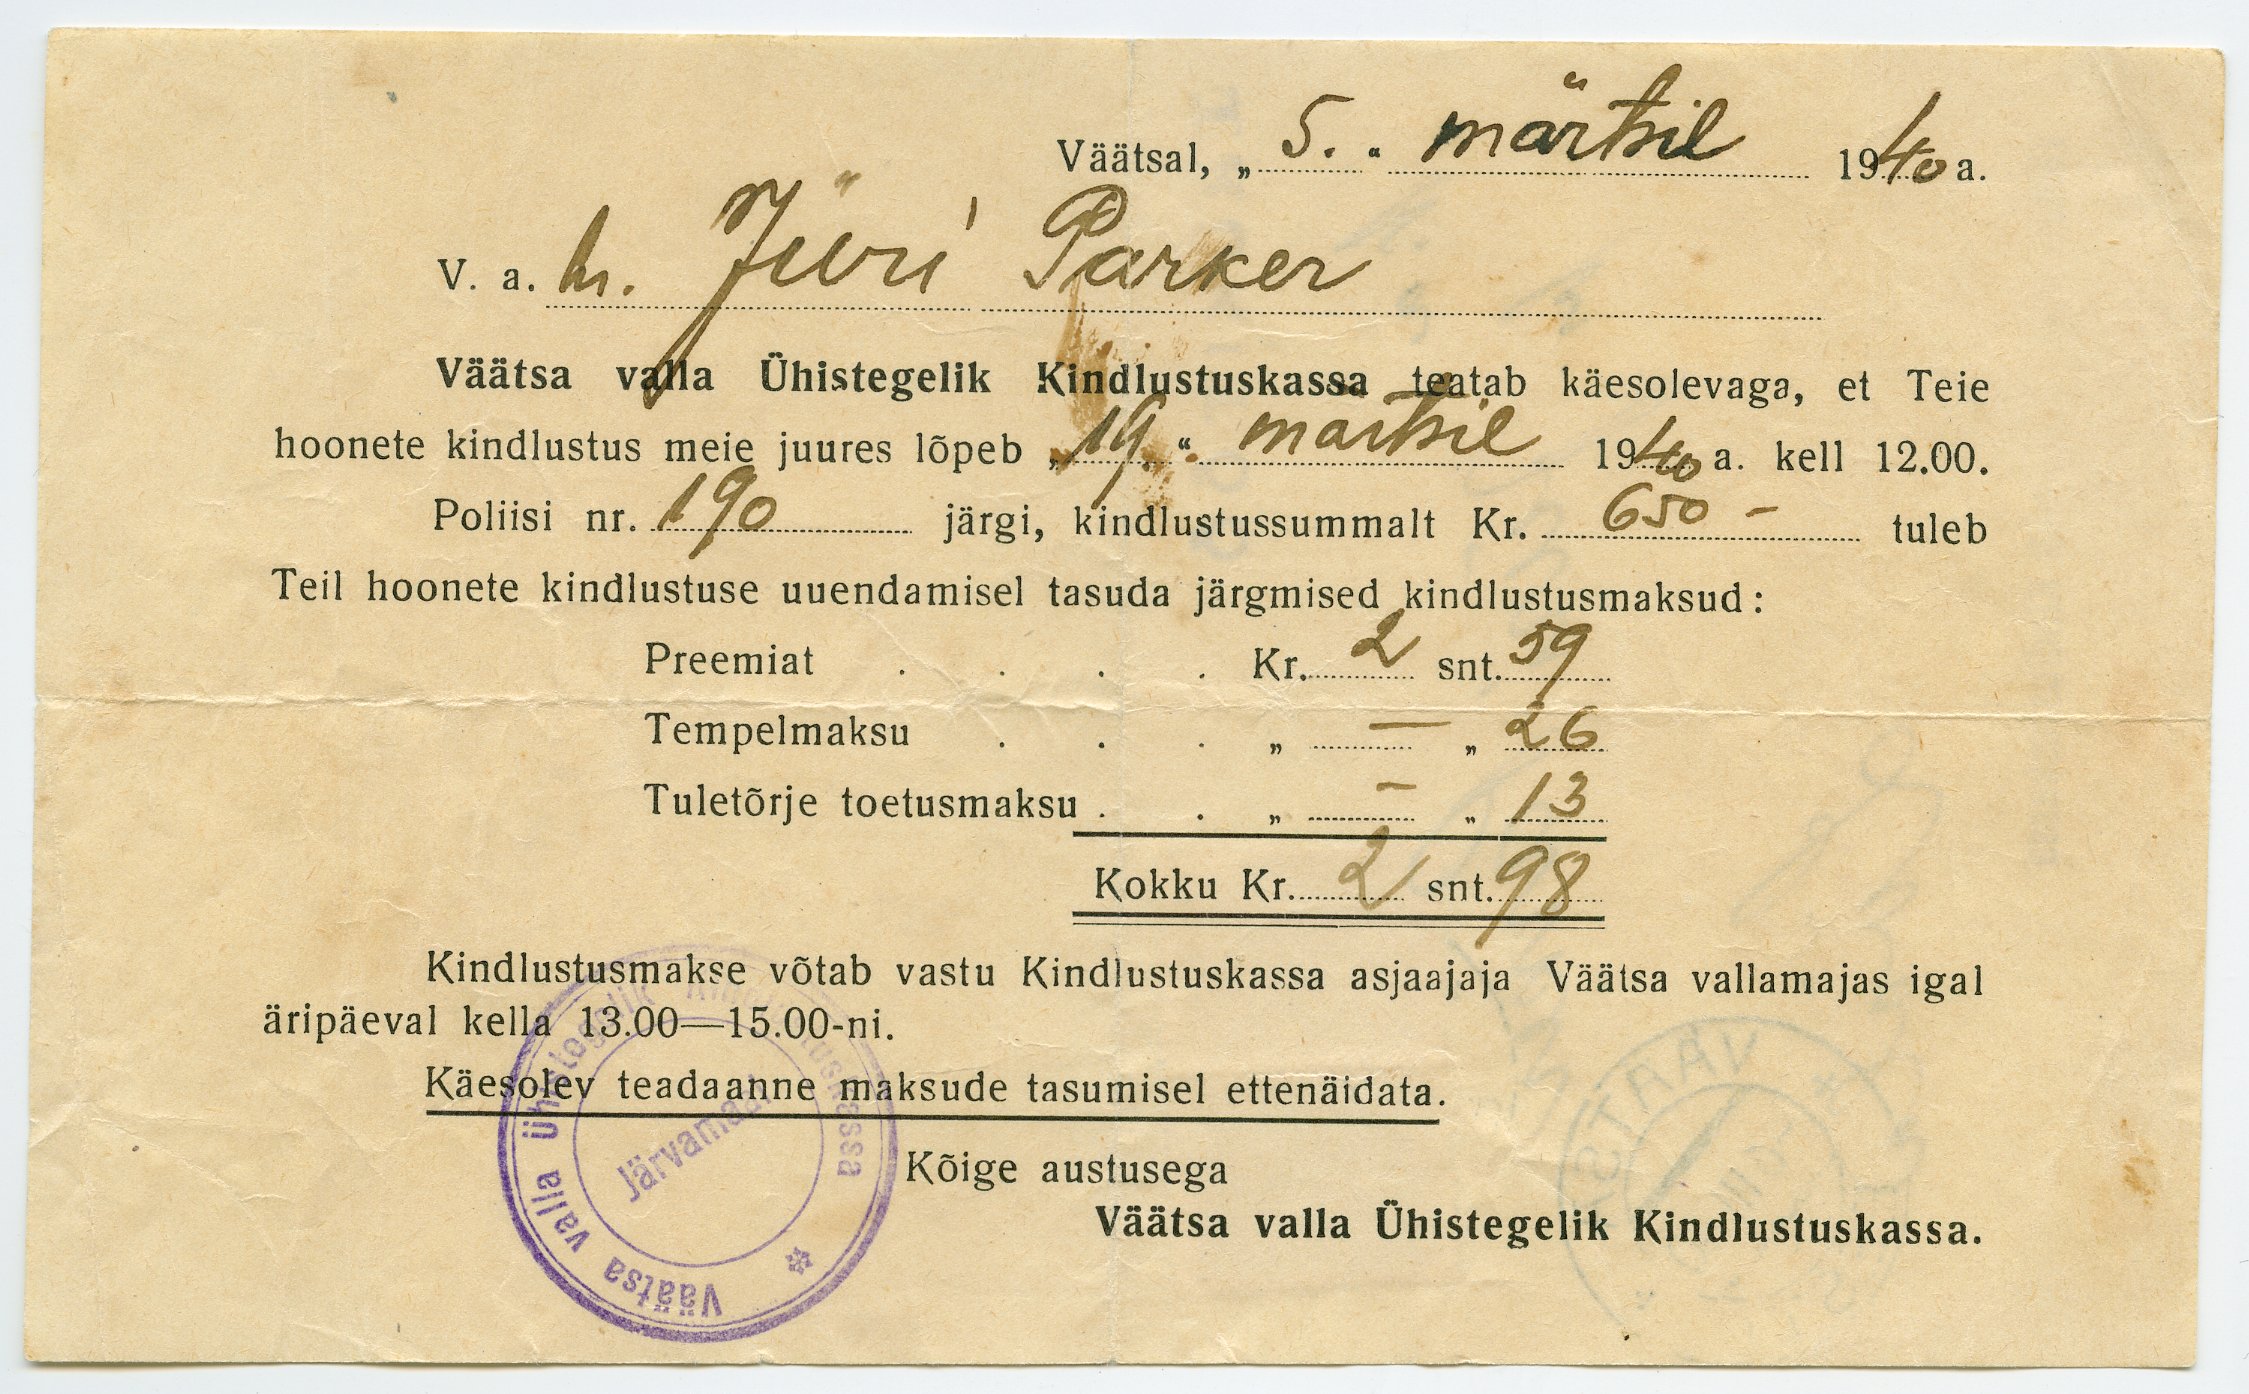 Väätsal, „5." märtsil 1940 a.
V. a. hr. Jüri Parker
Väätsa valla Ühistegelik Kindlustuskassa teatab käesolevaga, et Teie
hoonete kindlustus meie juures lõpeb „19." märtsil 1940 a. kell 12.00.
Poliisi nr. 190 järgi, kindlustussummalt Kr. 650 – tuleb
Teil hoonete kindlustuse uuendamisel tasuda järgmised kindlustusmaksud:
Preemiat . . . . Kr. 2 snt. 59
Tempelmaksu . . . „ — „ 26
Tuletõrje toetusmaksu . . „ – „ 13
Kokku Kr. 2 snt. 98
Kindlustusmakse võtab vastu Kindlustuskassa asjaajaja Väätsa vallamajas igal
äripäeval kella 13.00—15.00-ni.
Käesolev teadaanne maksude tasumisel ettenäidata.
Kõige austusega
Väätsa valla Ühistegelik Kindlustuskassa.
Väätsa valla Ühistegelik Kindlustuskassa
Järvamaal